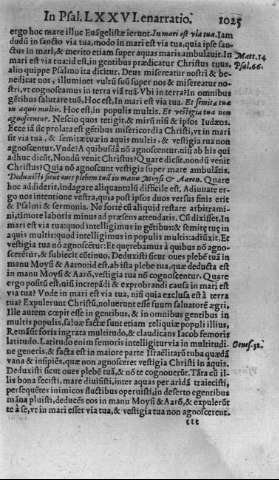 In Psal. LXXVI. enarratio.
1025
ergo hoc mare illuc Euāgelistæ ierunt. In mari est via tua. Iam
dudū in sancto via tua, modo in mari est via tua, quia ipse san-
ctus in mari, & merito etiam super aquas maris ambulauit. In
Matt. 14
mari est via tua, id est, in gentibus prædicatur Christus tuus.
Psal. 66.
alio quippe Psalmo ita dicitur. Deus misereatur nostri & be-
nedicat nos, illuminet vultū suū super nos & misereatur no-
stri, vt cognoscamus in terra viā tuā. Vbi in terra? In omnibus
gētibus salutare tuū. Hoc est, In mari est via tua. Et semitæ tuæ
in aquis multis. Hoc est, in populis multis. Et vestigia tua non
agnoscentur. Nescio quos tetigit, & miror nisi & ipsos Iudæos.
Ecce iā sic prolata est gētibus misericordia Christi, vt in mari
sit via tua, & semitæ tuæ in aquis multis: & vestigia tua non
agnoscentur. Vnde? A quibus nō agnoscentur, nisi ab his qui
adhuc dicūt, Nondū venit Christus? Quare dicūt, nondū venit
Christus? Quia nō agnoscunt vestigia super mare ambulātis.
Deduxisti sicut oues plebem tuā in manu Moysi & Aaron. Quare
hoc addiderit, indagare aliquantulū difficile est. Adiuuate er-
go nos intentione vestra, quia post ipsos duos versus finis erit
& Psalmi & sermonis. Ne forte cū aliquid restare arbitrami-
ni, timore laboris minus ad præsens attendatis. Cū dixisset, In
mari est via tua, quod intelligimus in gētibus: & semitæ tuæ in
aquis multis, quod intelligimus in populis multis: addixit. Et
vestigia tua nō agnoscētur: Et quærebamus à quibus nō agno-
scērētur, & subiecit cōtinuo, Deduxisti sicut oues plebē tuā in
manu Moysi & Aaron: id est, ab ista plebe tua, quæ deducta est
in manu Moysi & Aarō, vestigia tua nō cognoscentur. Quare
ergo positū est, nisi increpādi & exprobrandi causa in mari est
via tua? Vnde in mari est via tua, nisi quia exclusa est à terra
tua? Expulerunt Christū, noluerunt esse suum saluatorē ægri.
Ille autem cœpit esse in gentibus, & in omnibus gentibus in
multis populis, saluæ factæ sunt etiam reliquiæ populi illius.
Remāsit foris ingrata multitudo, & claudicans Iacob femoris
latitudo. Latitudo enim femoris intelligitur via in multitudi-
Genes. 32.
ne generis, & facta est in maiore parte Israëlitarū turba quædā
vana & insipiēs, quæ non agnosceret vestigia Christi in aquis.
Deduxisti sicut oues plebē tuā, & nō te cognouerūt. Tāta cū il-
lis bona fecisti, mare diuisisti, inter aquas per aridā traiecisti,
persequētes inimicos fluctibus operuisti, in deserto egentibus
māna pluisti, deducēs eos in manu Moysi & Aarō, & expulerūt
te à se, vt in mari esset via tua, & vestigia tua non agnoscerent.
ttt